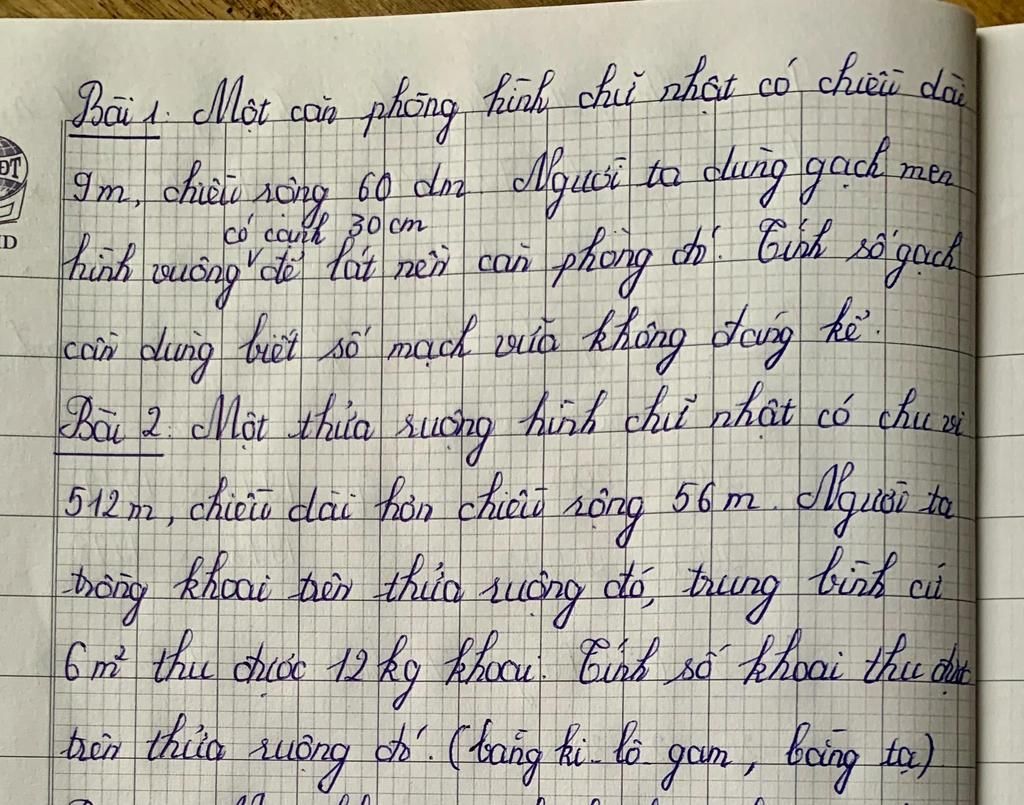 ĐT
D
Bài 1. Một căn phòng hình chữ nhật có chiều dài
9m, chiều rộng 60 dm. Người ta dùng gạch men
có cạnh 30 cm
hình vuông để lát nền căn phòng đó. Tính số gạch
cần dùng biết số mạch vữa không đáng kể.
Bài 2. Một thửa ruộng hình chữ nhật có chu vi
512m, chiều dài hơn chiều rộng 56 m. Người ta
trồng khoai trên thửa ruộng đó, trung bình cứ
6 m² thu được 12 kg khoai. Tính số khoai thu được
trên thửa ruộng đó. (bằng ki-lô-gam, bằng tạ)